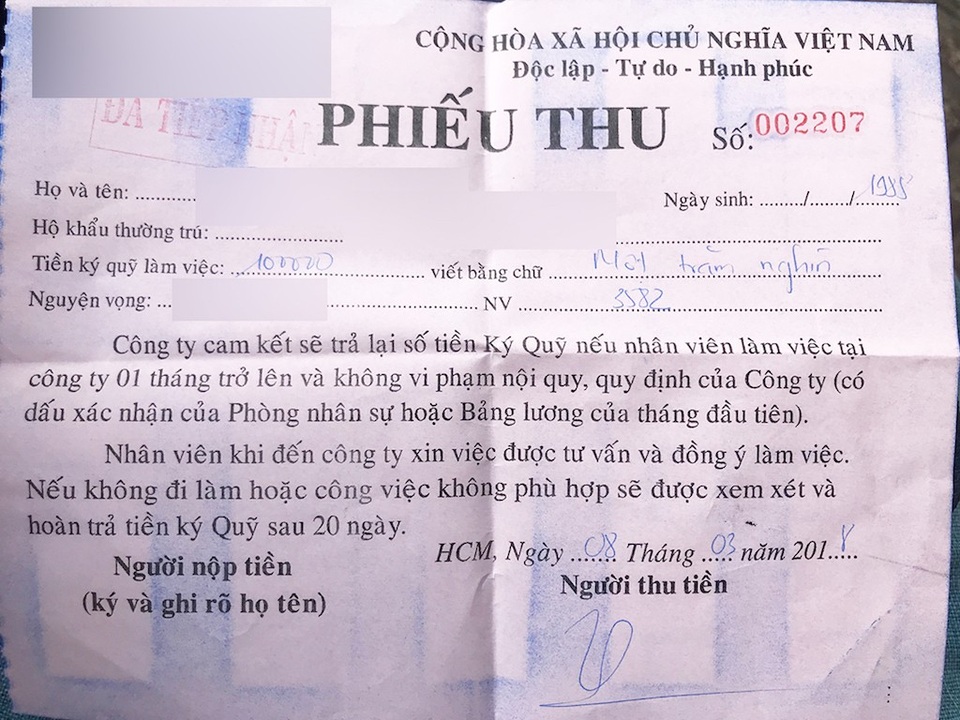 CỘNG HÒA XÃ HỘI CHỦ NGHĨA VIỆT NAM
Độc lập - Tự do - Hạnh phúc
ĐÃ TIẾP NHẬN
PHIẾU THU Số: 002207
Họ và tên: ............
Ngày sinh: ......../......../ 1985
Hộ khẩu thường trú: ....................
Tiền ký quỹ làm việc: 100000 viết bằng chữ Một trăm nghìn
Nguyện vọng: ... NV 3582
Công ty cam kết sẽ trả lại số tiền Ký Quỹ nếu nhân viên làm việc tại
công ty 01 tháng trở lên và không vi phạm nội quy, quy định của Công ty (có
dấu xác nhận của Phòng nhân sự hoặc Bảng lương của tháng đầu tiên).
Nhân viên khi đến công ty xin việc được tư vấn và đồng ý làm việc.
Nếu không đi làm hoặc công việc không phù hợp sẽ được xem xét và
hoàn trả tiền ký Quỹ sau 20 ngày.
HCM, Ngày 08 Tháng 03 năm 2018
Người nộp tiền
(ký và ghi rõ họ tên)
Người thu tiền